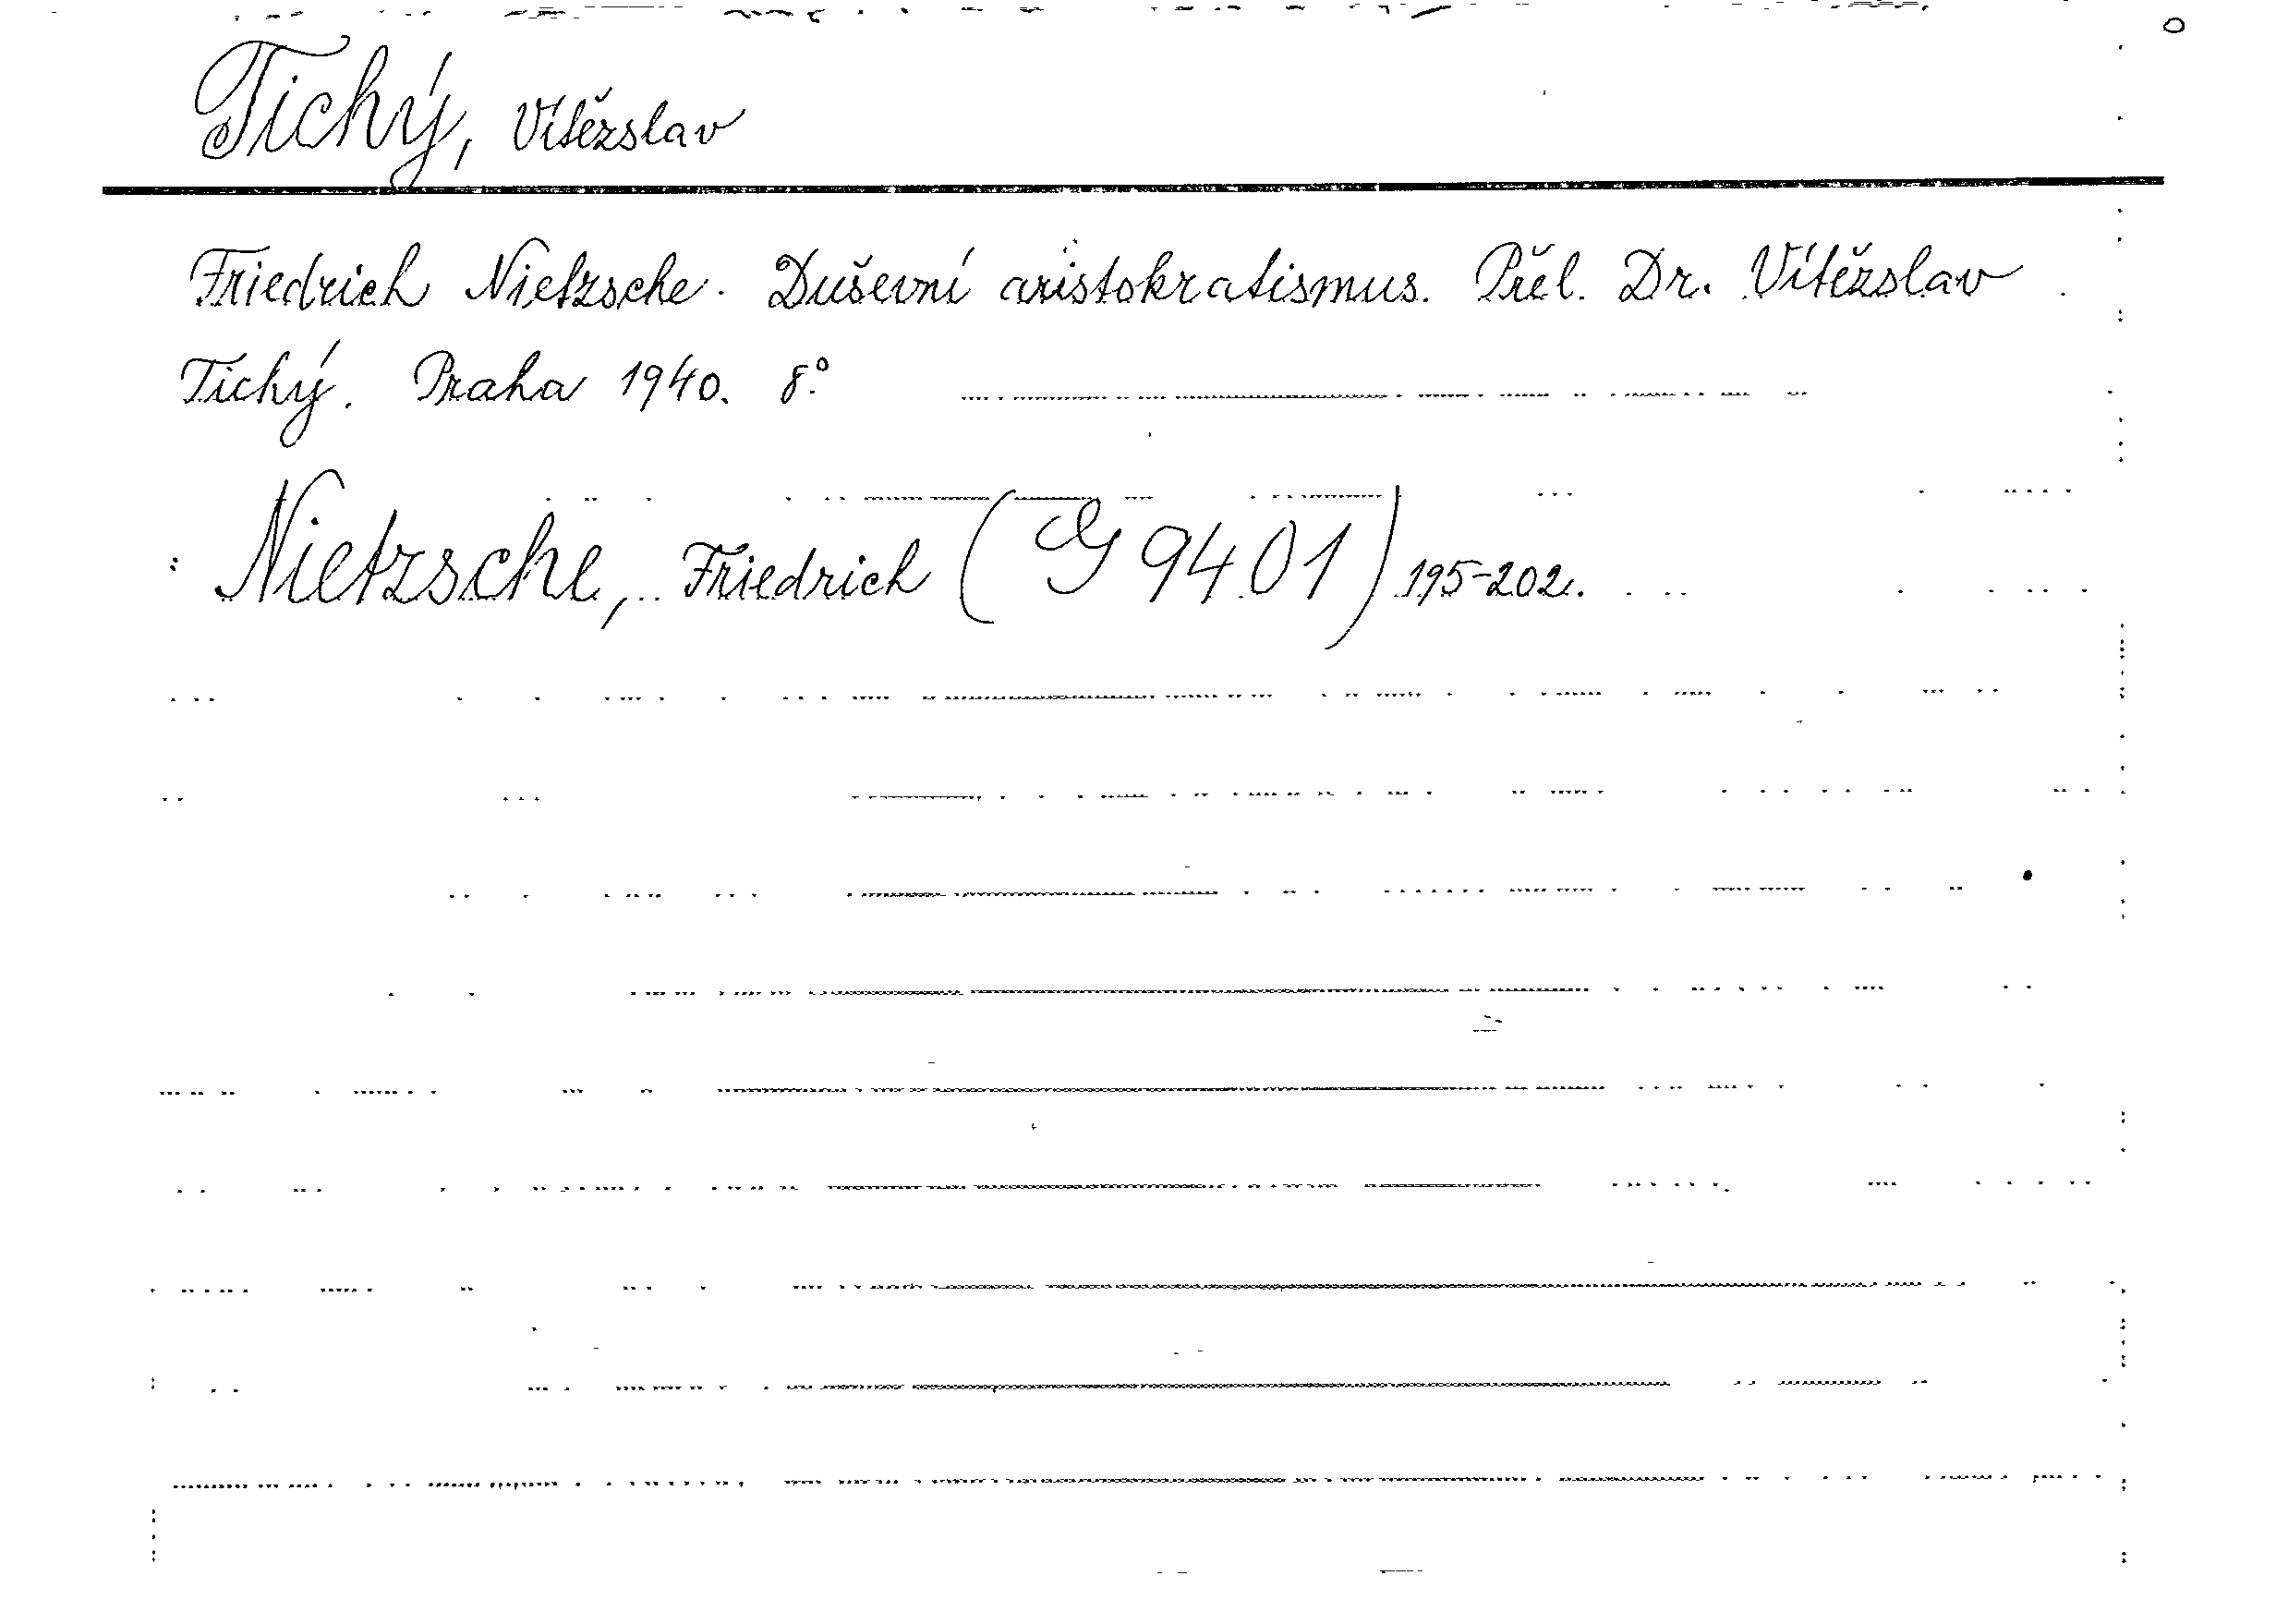 Tichý, Vítězslav
Friedrich Nietzsche. Duševní aristokratismus. Přel. Dr. Vítězslav
Tichý. Praha 1940. 8°.
Nietzsche, Friedrich (G 9401) 195-202.